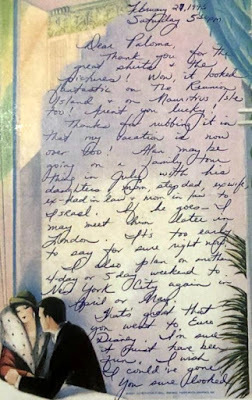 February 28, 1998
Saturday 5:30 PM
Dear Paloma,
Thank you for the
great shirts & the
pictures! Wow, it looked
fantastic on The Reunion
Island & on Mauritius Isle
too! Aren't you lucky!
Thanks for rubbing it in
that my vacation is now
over too! Alan may be
going on a family tour
thing in July with his
daughters, mom, step dad, ex wife,
ex-dad in law & mom in law to
Israel. If he goes I
may meet them later in
London. It's too early
to say for sure right now.
I also plan on another
4 day or 5 day weekend to
New York City again in
April or May.
That's great that
you went to Euro
Disney! I'm sure
it must have been
fun. I wish
I could've gone.
You sure looked